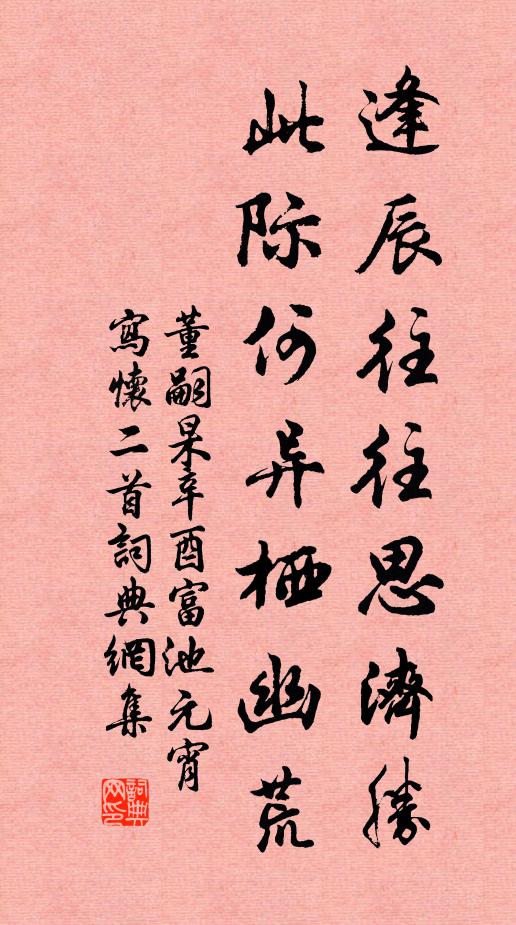 逢辰往往思濟勝
此际何异栖幽荒
董嗣杲辛酉富池元宵
寫懷二首詞典網集
詞典网印